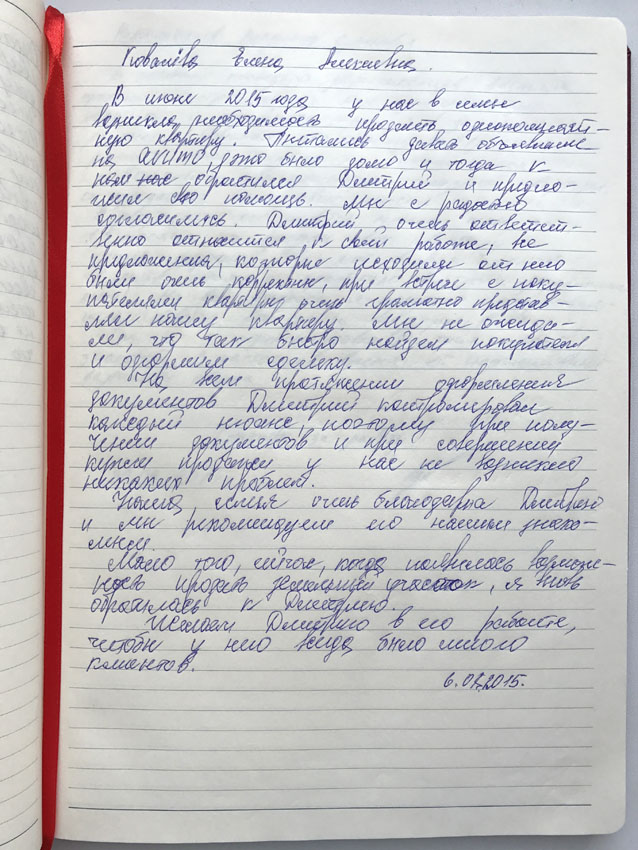 Ковалёва Елена Алексеевна.
В июне 2015 года у нас в семье
возникла необходимость продать однокомнат-
ную квартиру. Пытались давать объявление
на АВИТО, это было долго и тогда к
нам обратился Дмитрий и предло-
жил свою помощь. Мы с радостью
согласились. Дмитрий очень ответст-
венно относится к своей работе, все
предложения, которые исходили от него
были очень корректны, при встрече с поку-
пателями квартиры очень грамотно представ-
лял нашу квартиру. Мы не ожида-
ли, что так быстро найдем покупателя
и оформим сделку.
На всем протяжении оформления
документов Дмитрий контролировал
каждый нюанс, поэтому при полу-
чении документов и при совершении
купли продажи у нас не возникло
никаких проблем.
Наша семья очень благодарна Дмитрию
и мы рекомендуем его нашим знако-
мым.
Мало того, сейчас, когда появилась возмож-
ность продать земельный участок, я вновь
обратилась к Дмитрию.
Желаем Дмитрию в его работе,
чтобы у него всегда было много
клиентов.
6.07.2015.